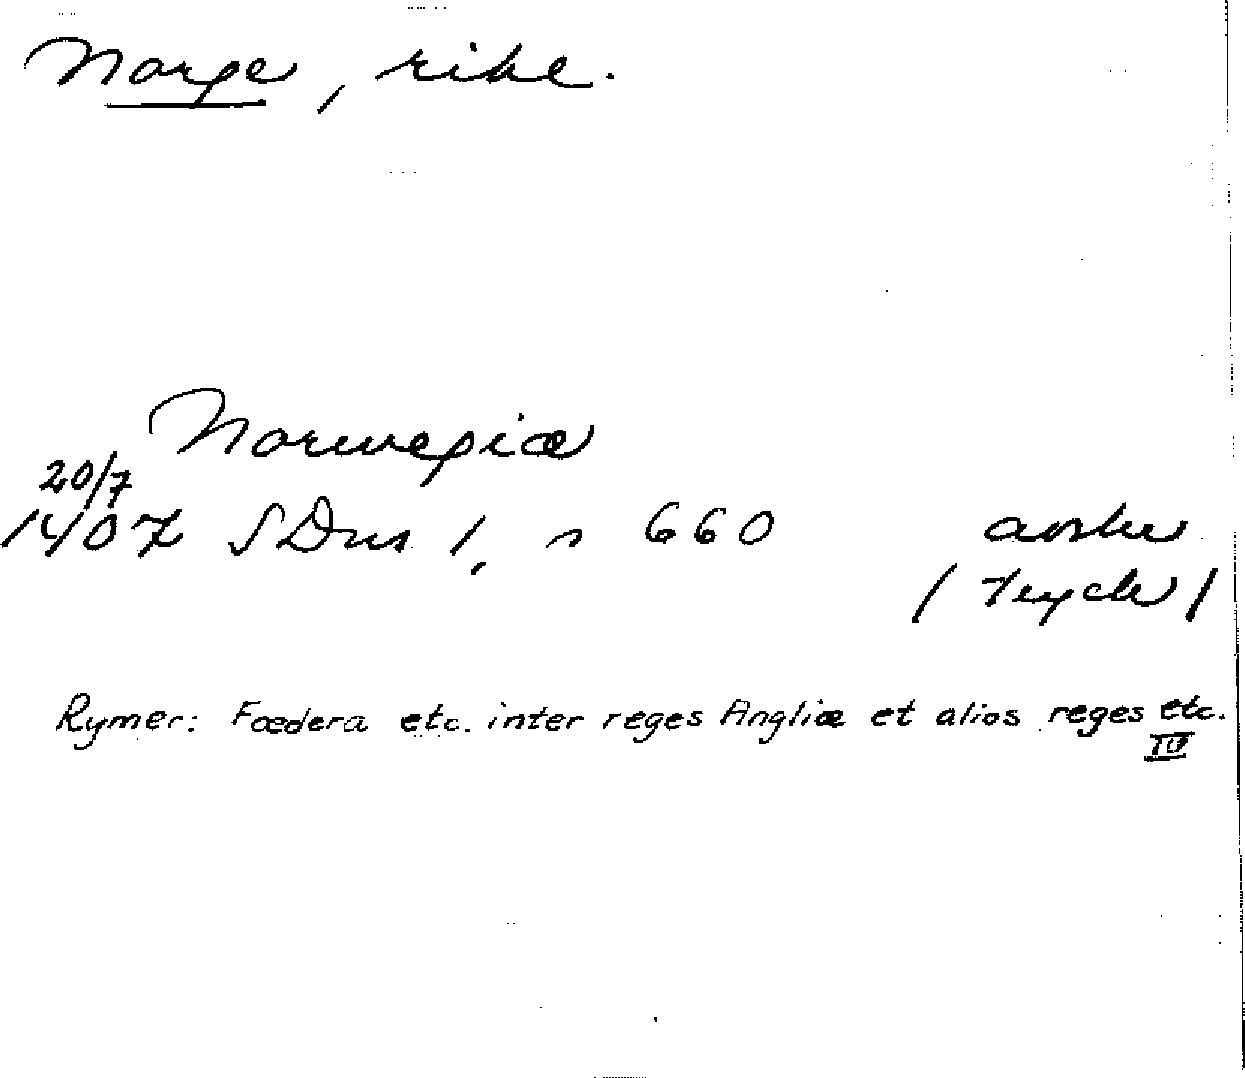 Norge, rike.
Norwegiæ
20/7
1407 SDns 1, s 660 avskr
(tryck)
Rymer: Fœdera etc. inter reges Angliæ et alios reges etc.
IV